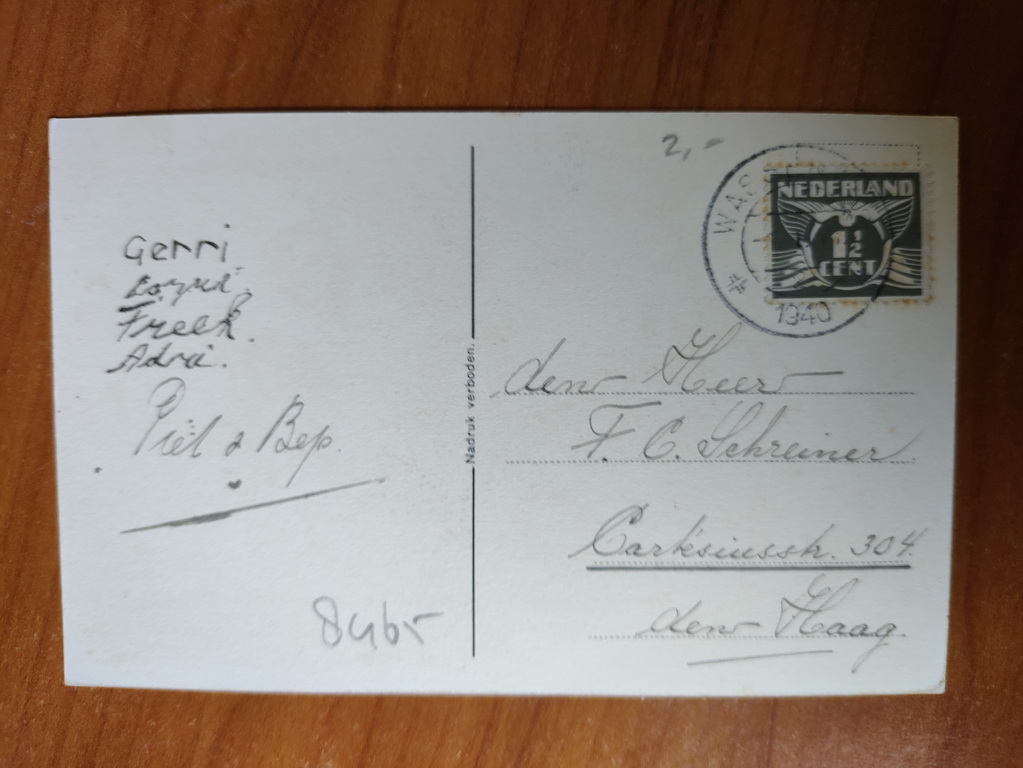 Gerri
Freek.
Adri.
Piet & Bep.
8465
Nadruk verboden.
2,-
WAS
1940
NEDERLAND
1 1/2
CENT
den Heer
F. C. Schreiner
304.
den Haag.